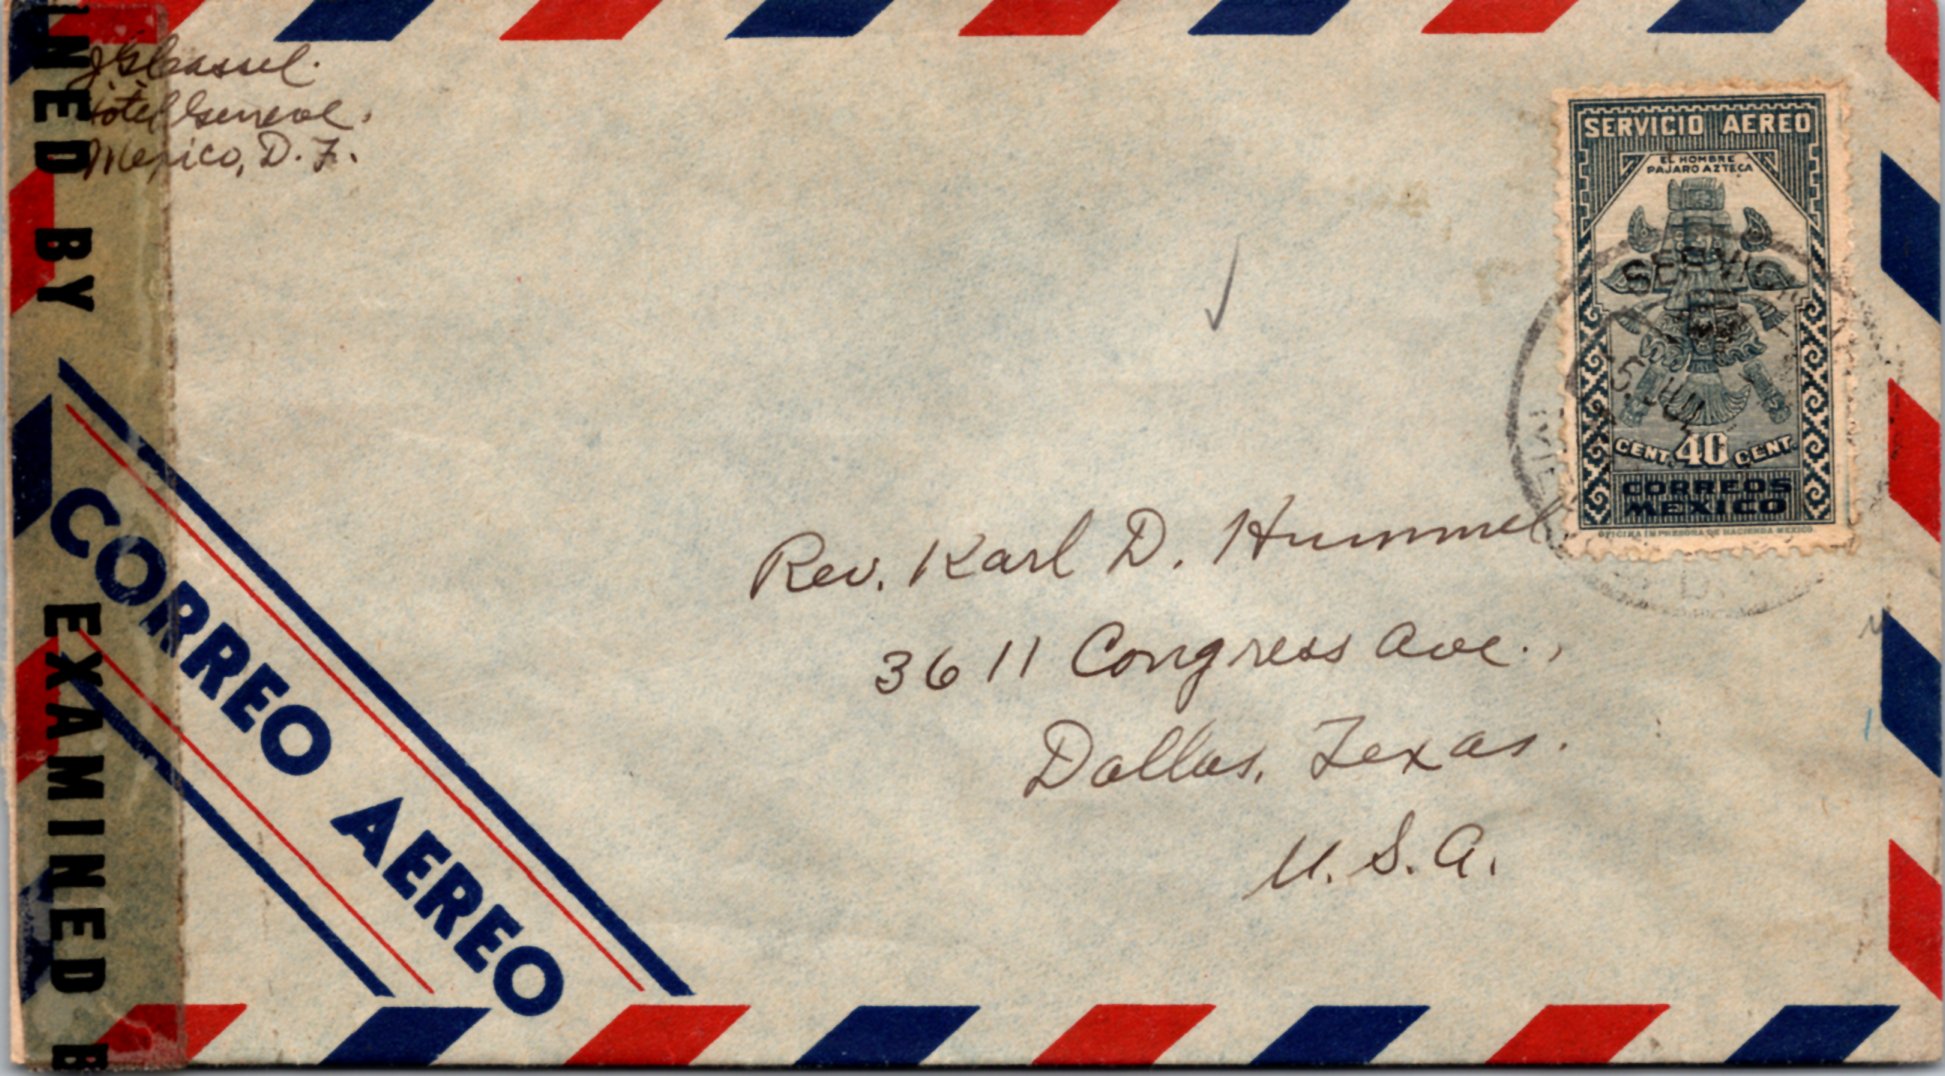 J G Cassel.
Hotel Geneve,
Mexico, D. F.
SERVICIO AEREO
EL HOMBRE
PAJARO AZTECA
SERVICI
5. JUL
CENT. 40 CENT.
CORREOS
MEXICO
OFICINA IMPRESORA DE HACIENDA MEXICO
Rev. Karl D. Hummel
3611 Congress Ave.,
Dallas, Texas.
U. S. A.
CORREO AEREO
INED BY
EXAMINED B